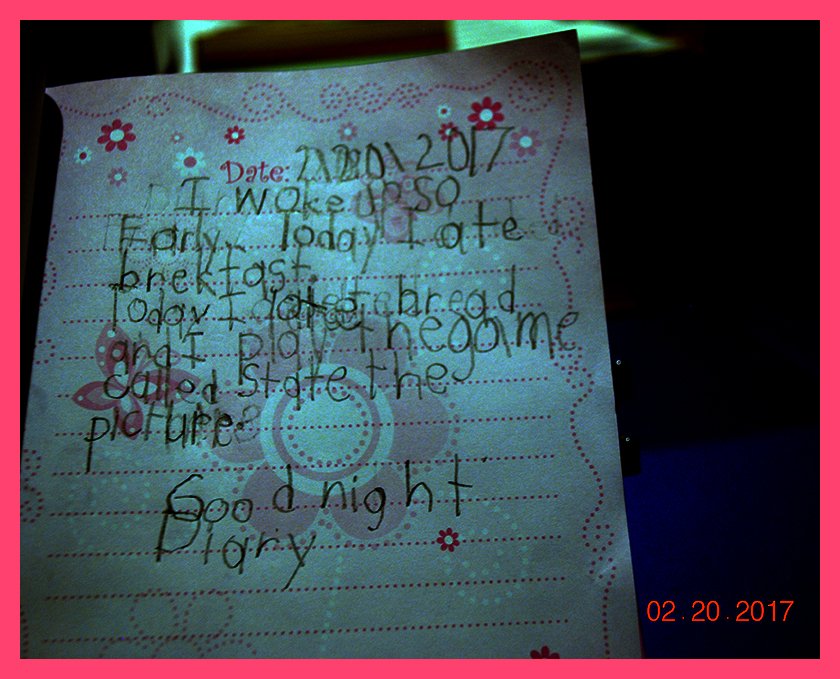 Date: 2\20\2017
I woke up so
Early. Today I ate
brekfast.
Today I ate bread
and I play the game
called state the
picture
Good night
Diary
02.20.2017